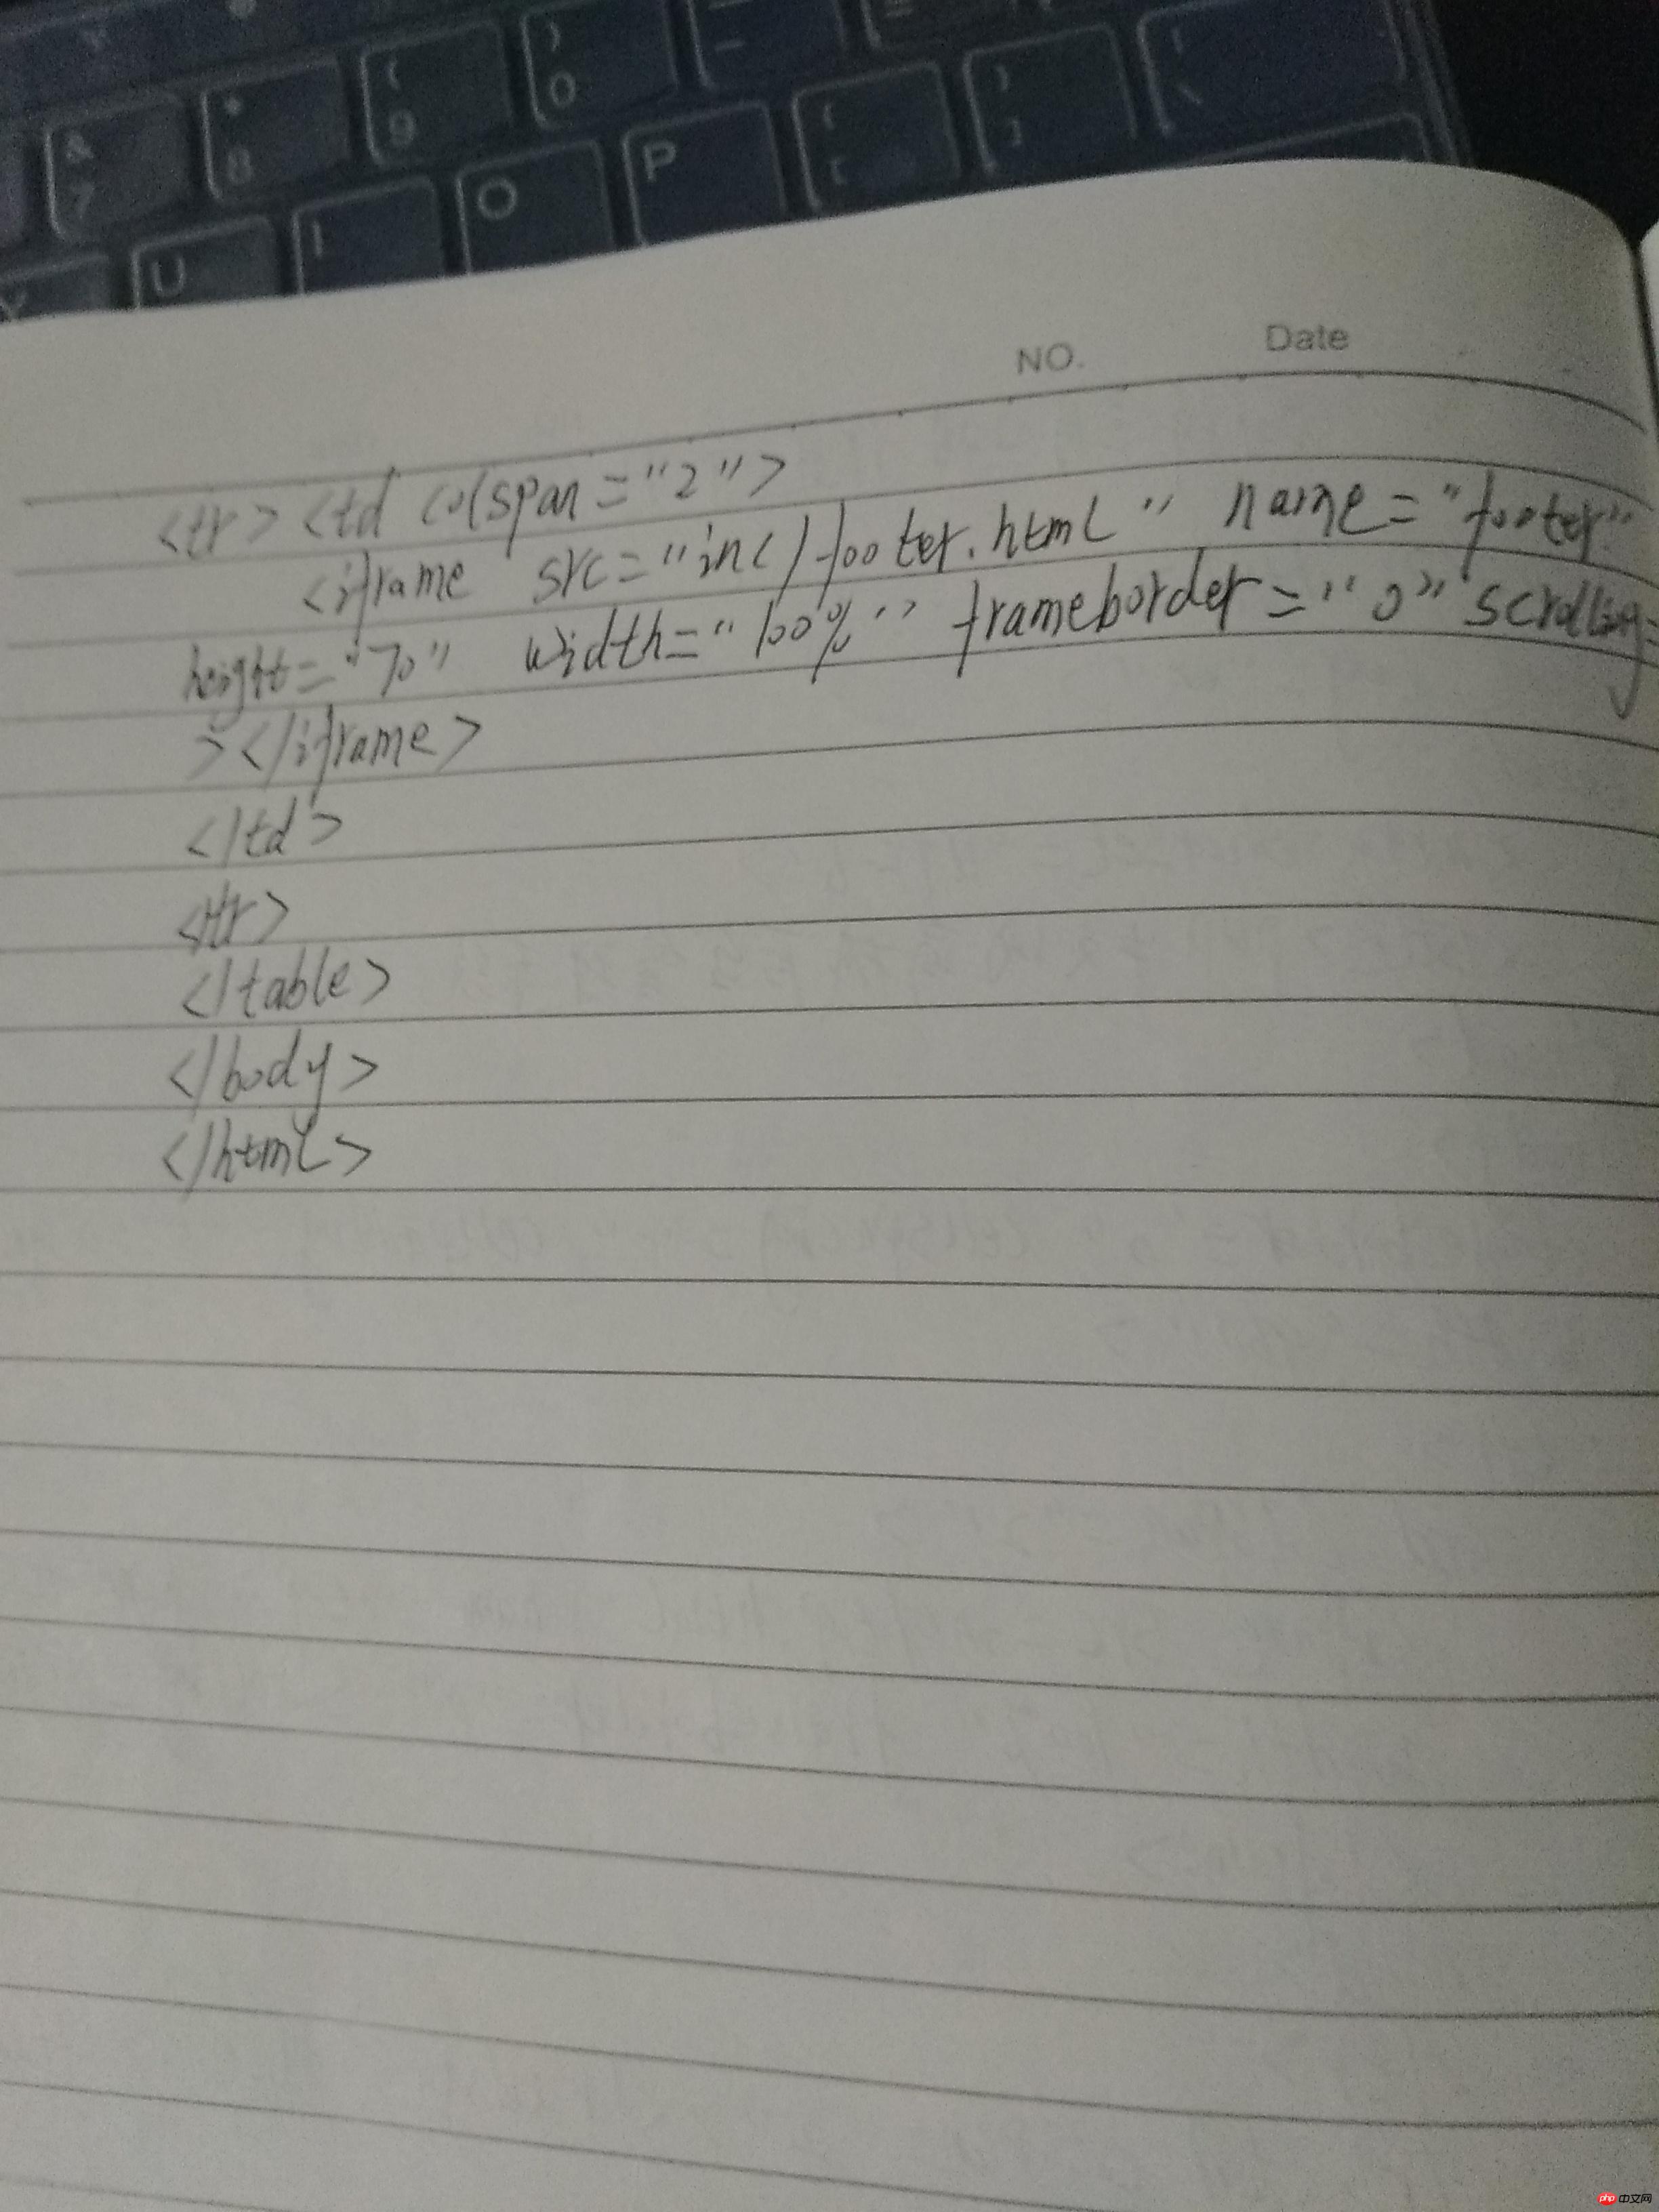 & 7
* 8
( 9
) 0
_ -
Y U I O P { [ } ] | \
NO. Date
<tr> <td colspan="2">
<iframe src="inc/footer.html" name="footer"
height="70" width="100%" frameborder="0" scrolling=
></iframe>
</td>
</tr>
</table>
</body>
</html>
php 中文网